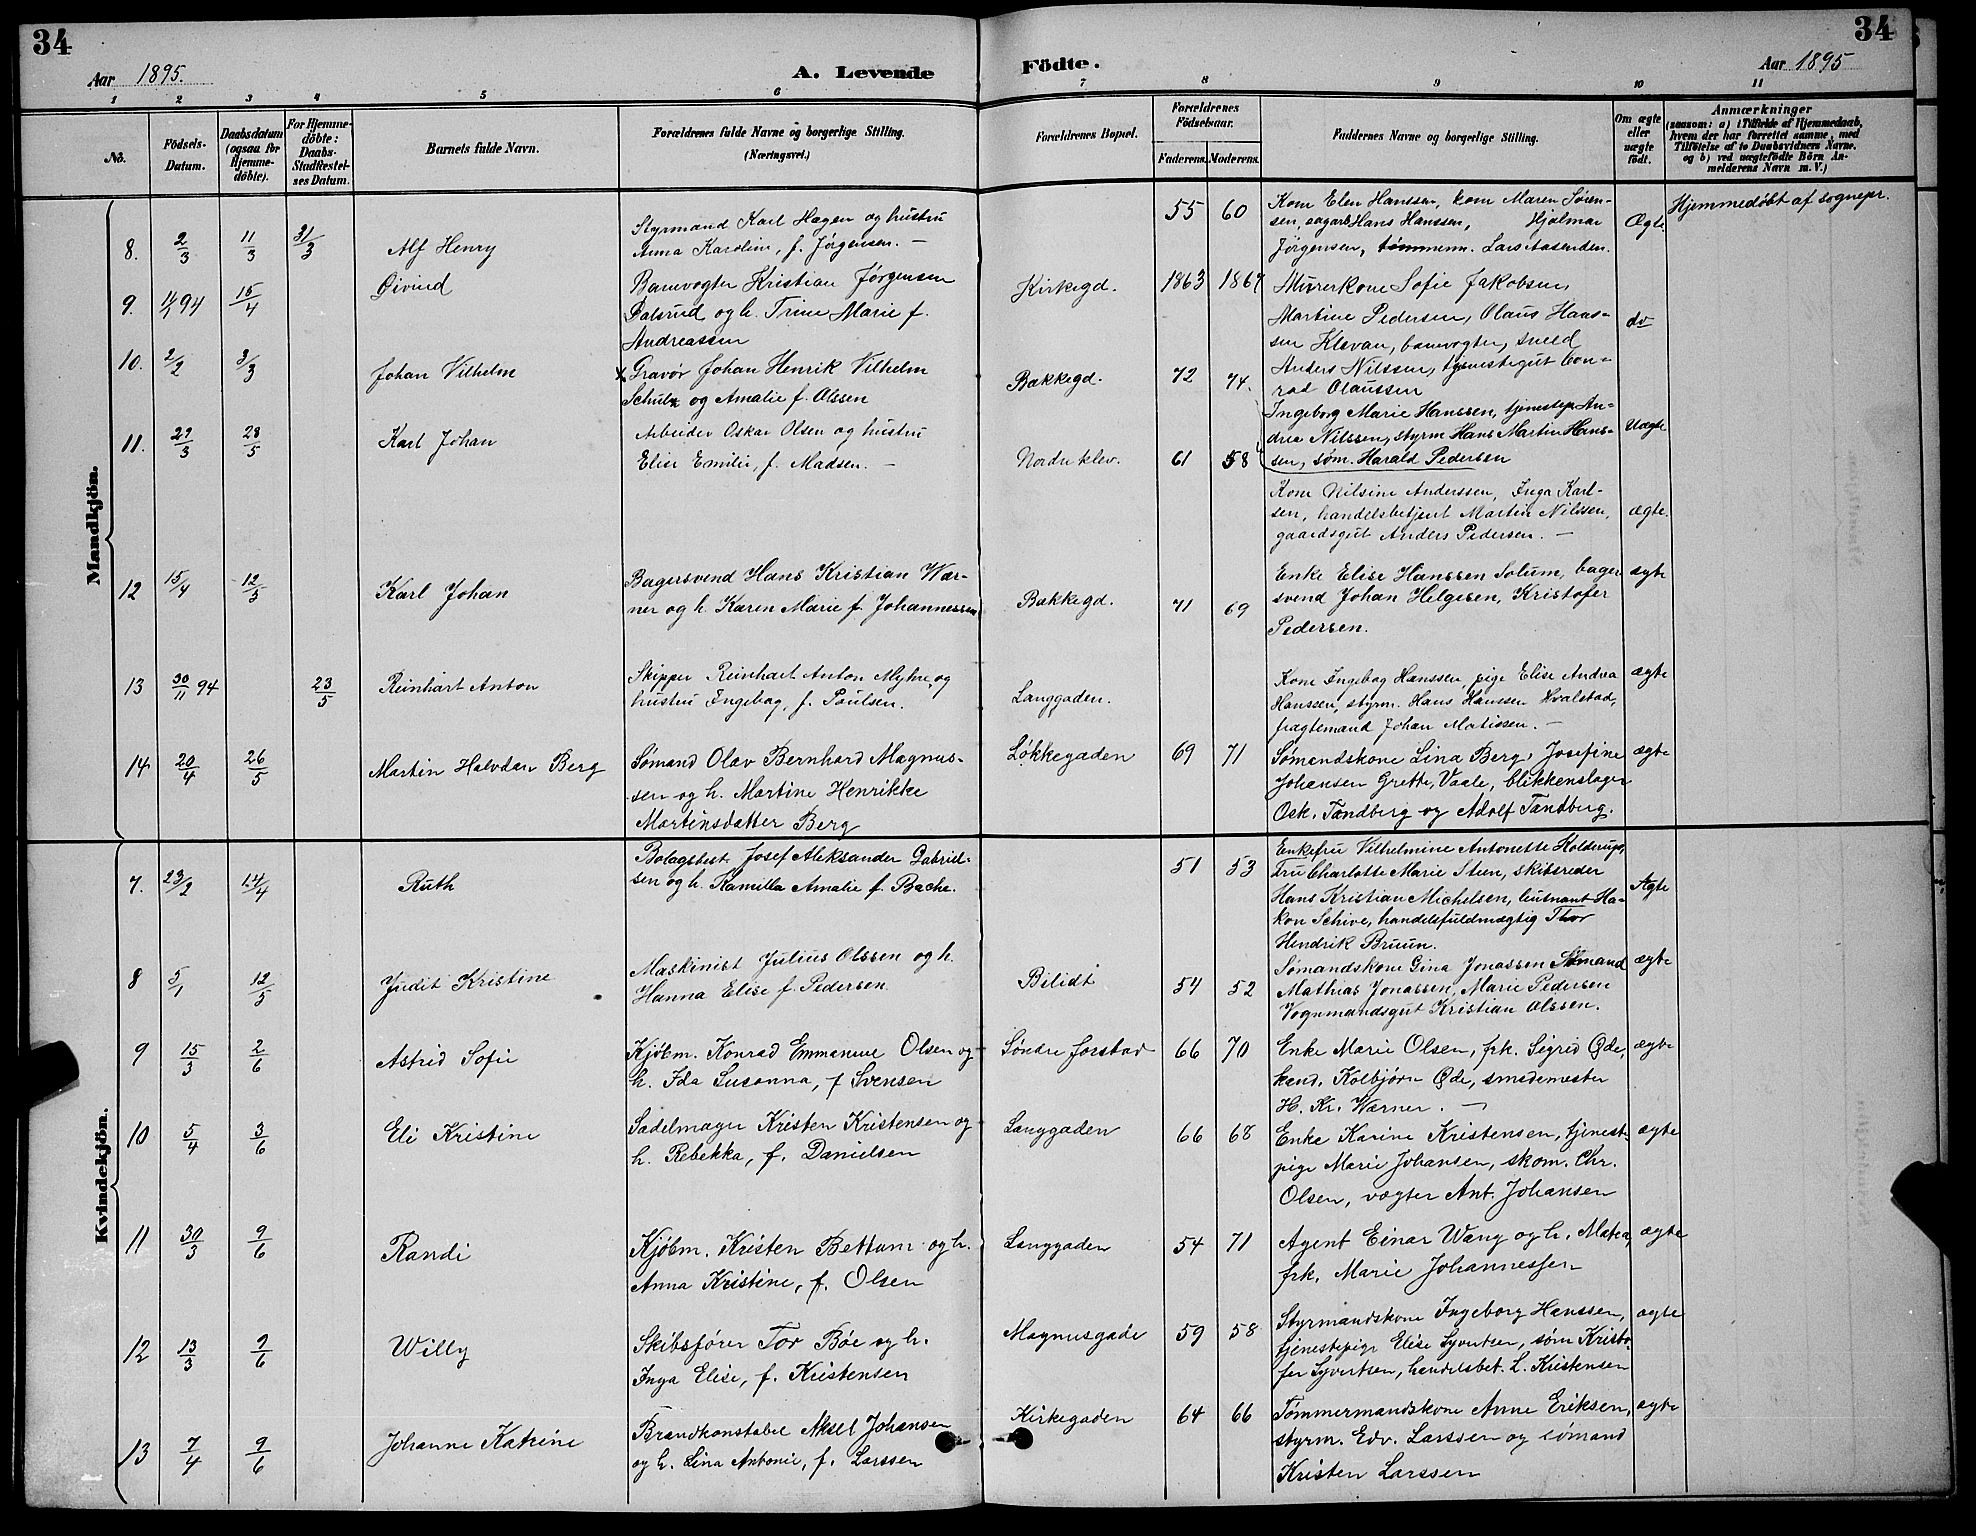 34
34
Aar 1895.
A. Levende Födte.
Aar 1895
1 2 3 4 5 6 7 8 9 10 11
No.
Födsels-
Datum.
Daabsdatum
(ogsaa for
Hjemme-
döbte).
For Hjemme-
döbte:
Daabs-
Stadfæstel-
ses Datum.
Barnets fulde Navn.
Forældrenes fulde Navne og borgerlige Stilling.
(Næringsvei.)
Forældrenes Bopæl.
Forældrenes
Födselsaar.
Faderens. Moderens.
Faddernes Navne og borgerlige Stilling.
Om ægte
eller
uægte
födt.
Anmærkninger
(saasom: a) i Tilfælde af Hjemmedaab,
hvem der har forrettet samme, med
Tilföielse af to Daabsvidners Navne,
og b) ved uægtefödte Börn An-
melderens Navn m. V.)
Mandkjön.
8. 2/3 11/3 31/3 Alf Henry
Styrmand Karl Hagen og hustru
Anna Karoline, f. Jørgensen. —
55 60
Kone Elen Hanssen, kone Maren Søren-
sen, sagarb Hans Hanssen, Hjalmar
Jörgensen, tømmerm. Lars Aasenden.
Ægte
Hjemmedøbt af sognepr.
9. 94 15/4 Øivind
Banevogter Kristian Jørgensen
Dalsrud og h. Trine Marie f.
Andreassen
Kirkegd. 1863 1867
Murerkone Sofie Jakobsen,
Martine Pedersen, Olaus Hans-
sen Klevan, banevogter, sneld
Anders Nilssen, tjenestegut Con-
rad Olaussen
do
10. 2/2 3/3 Johan Vilhelm
x Gravør Johan Henrik Vilhelm
Schulz og Amalie f. Olssen
Bakkegd. 72 74.
Ingeborg Marie Hanssen, tjenestep An-
drea Nilssen, styrm Hans Martin Hans-
sen, søm. Harald Pedersen
Uægte
11. 27/3 28/5 Karl Johan
Arbeider Oskar Olsen og hustru
Elise Emilie, f. Madsen. —
Nordre klev. 61 58
Kone Nilsine Anderssen, Inga Karl-
sen, handelsbetjent Martin Nilssen,
gaardsgut Anders Pedersen. —
ægte.
12 15/4 12/5 Karl Johan
Bagersvend Hans Kristian Wær-
ner og h. Karen Marie f. Johannessen
Bakkegd. 71 69
Enke Elise Hanssen Solum, bager
svend Johan Helgesen, Kristofer
Pedersen.
ægte
13 30/11 94 23/5 Reinhart Anton
Skipper Reinhart Anton Myhre og
hustru Ingebag, f. Poulsen.
Langgaden.
Kone Ingebag Hanssen, pige Elise Andrea
Hanssen, styrm. Hans Hanssen Hvalstad,
fragtemand Johan Matissen. —
ægte
14 20/4 26/5 Martin Halvdan Berg
Sømand Olav Bernhard Magnus-
sen og h. Martine Henrikke
Martinsdatter Berg
Løkkegaden 69 71
Sømandskone Lina Berg, Josefine
Johansen Grette, Vaale, blikkenslager
Osk. Tandberg og Adolf Tandberg.
ægte
Kvindekjön.
7. 23/2 14/4 Ruth
Bolagsbest. Josef Aleksander Gabriel-
sen og h. Kamilla Amalie f. Bache.
51 53
Enkefru Vilhelmine Antonette Holderup,
Fru Charlotte Marie Steen, skibsreder
Hans Kristian Michelsen, leutnant Ha-
kon Schive, handelsfuldmægtig Thor
Hendrik Bruun.
Ægte
8 5/1 12/5 Judit Kristine
Maskinist Julius Olssen og h.
Hanna Elise f. Pedersen
Bilidt 54 52
Sømandskone Gina Jonassen Sømand
Mathias Jonassen, Marie Pedersen
Vognmandsgut Kristian Olssen.
ægte
9 15/3 2/6 Astrid Sofie
Kjøbm. Konrad Emmanuel Olsen og
h. Ida Susanna, f Svensen
Søndre forstad 66 70
Enke Marie Olsen, frk. Sigrid Øde,
kand. Kolbjørn Øde, smedemester
H. Kr. Wærner. —
ægte
10 5/4 3/6 Eli Kristine
Sadelmager Kristen Kristensen og
h. Rebekka, f. Danielsen
Langgaden 66 68
Enke Karine Kristensen, tjenest-
pige Marie Johansen, skom. Chr.
Olsen, vægter Ant. Johansen
ægte
11 30/3 9/6 Randi
Kjøbm. Kristen Bettum og h.
Anna Kristine, f. Olsen
Langgaden 54 71
Agent Einar Wang og h. Matea,
frk. Marie Johannessen
ægte
12 13/3 9/6 Willy
Skibsfører Tor Bøe og h.
Inga Elise, f. Kristensen
Magnusgade 59 58
Styrmandskone Ingeborg Hanssen,
tjenestepige Elise Syvertsen, søm Kristo-
fer Syvertsen, handelsbet. L. Kristensen
ægte
13 7/4 9/6 Johanne Katrine
Brandkonstabel Aksel Johansen
og h. Lina Antonie, f. Larssen
Kirkegaden 64 66
Tømmermandskone Anne Eriksen,
styrm. Edv. Larssen og sømand
Kristen Larssen
ægte